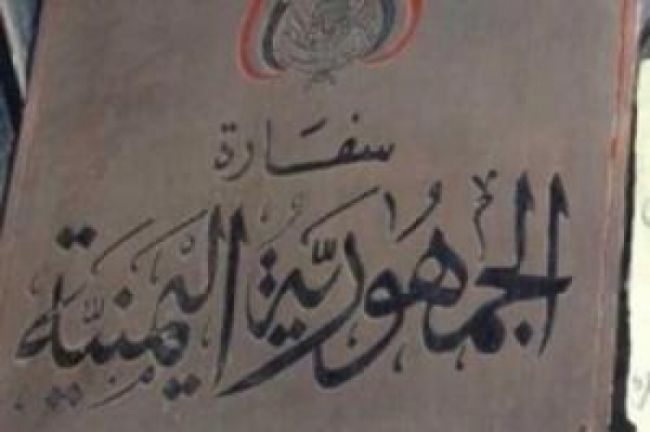 سفَارة
الجمهُوريَّة اليَمنيَّة